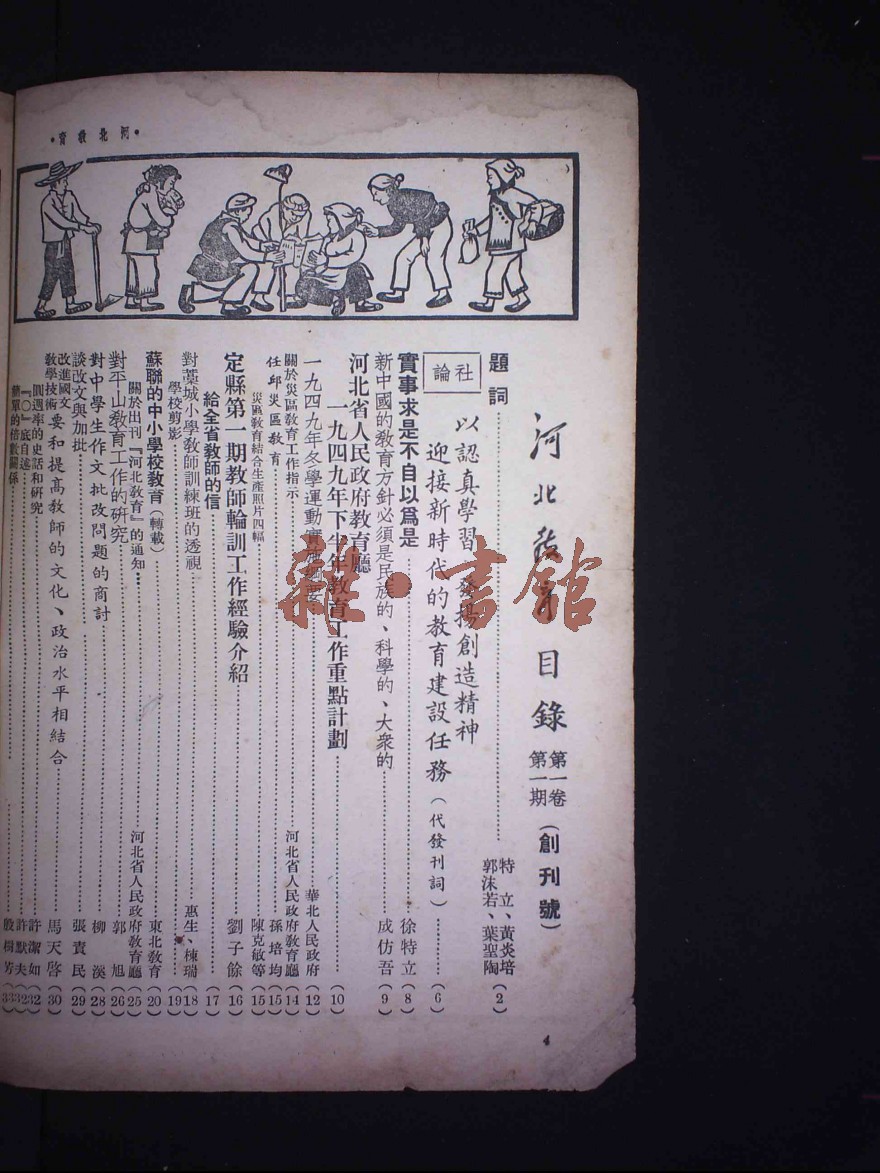 •河北教育•
河北教育目錄 第一卷 第一期 (創刊號)
題詞 特立、黃炎培 郭沫若、葉聖陶 (2)
社論
以認真學習發揚創造精神
迎接新時代的教育建設任務(代發刊詞) (6)
實事求是不自以爲是 徐特立 (8)
新中國的教育方針必須是民族的、科學的、大衆的 成仿吾 (9)
河北省人民政府教育廳
一九四九年下半年教育工作重點計劃 (10)
一九四九年冬學運動實施綱要 華北人民政府 (12)
關於災區教育工作指示 河北省人民政府教育廳 (14)
任邱災區教育 孫培均 (15)
災區教育結合生產照片四幅 陳克敏等 (15)
定縣第一期教師輪訓工作經驗介紹 劉子餘 (16)
給全省教師的信 (17)
對藁城小學教師訓練班的透視 惠生、棟瑞 (18)
學校剪影 (19)
蘇聯的中小學校教育(轉載) 東北教育 (20)
關於出刊『河北教育』的通知 河北省人民政府教育廳 (25)
對平山教育工作的研究 郭旭 (26)
對中學生作文批改問題的商討 柳溪 (28)
談改文與加批 張責民 (29)
改進國文教學技術要和提高教師的文化、政治水平相結合 馬天啓 (30)
圓週率的史話和研究 許潔如 (32)
『〇』底自述 許默夫 (32)
簡單的倍數關係 殷樹芳 (33)
4
雜•書館